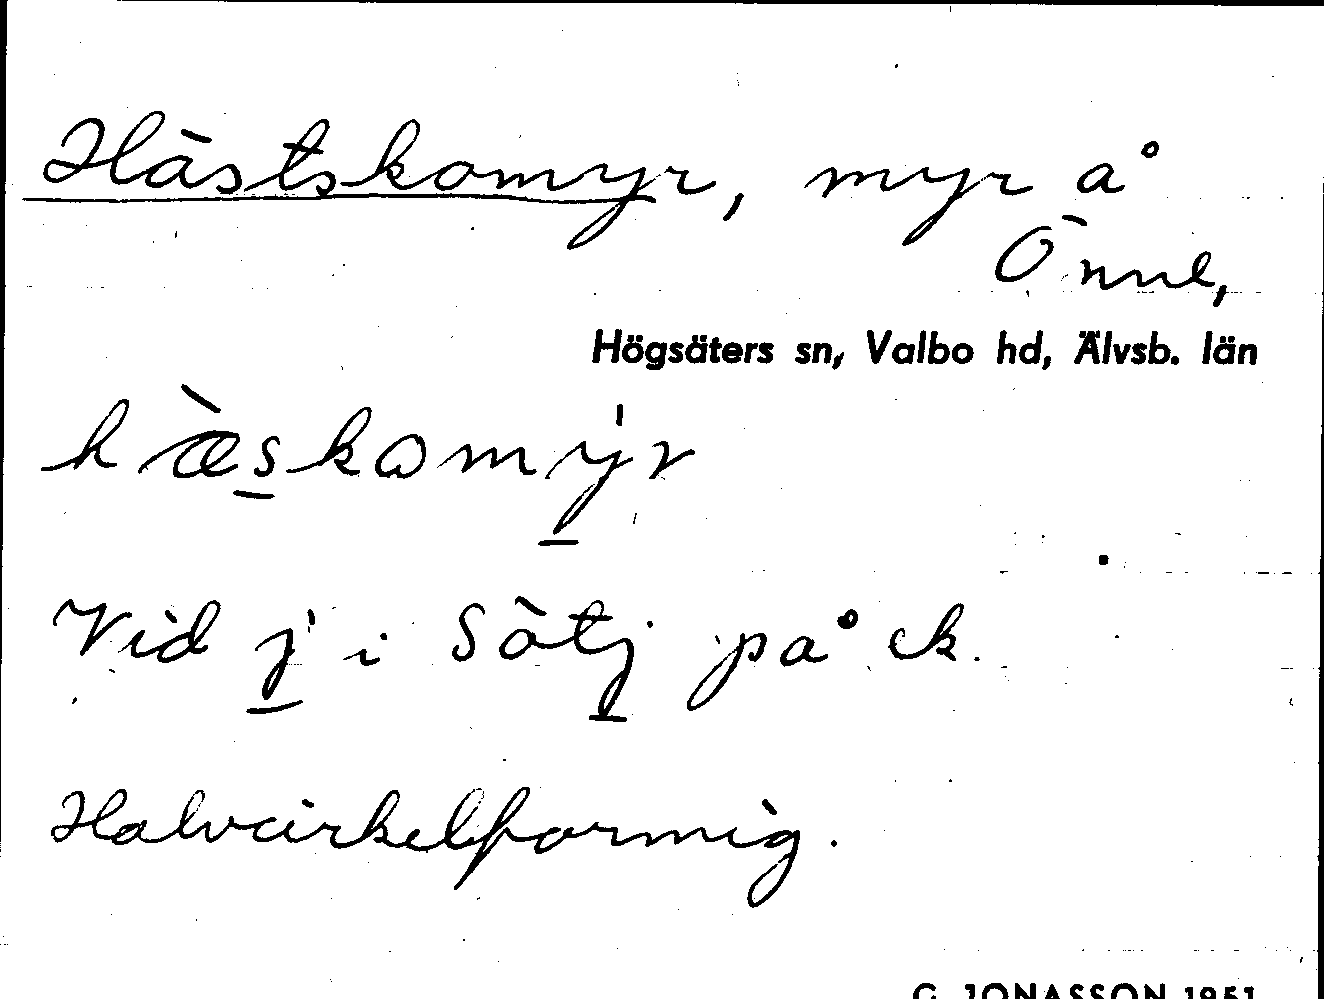 Hästskomyr, myr å
Önne,
Högsäters sn, Valbo hd, Älvsb. län
hæ̀skomýr
Vid j i Sötj på ek.
Halvcirkelformig.
G. JONASSON 1951